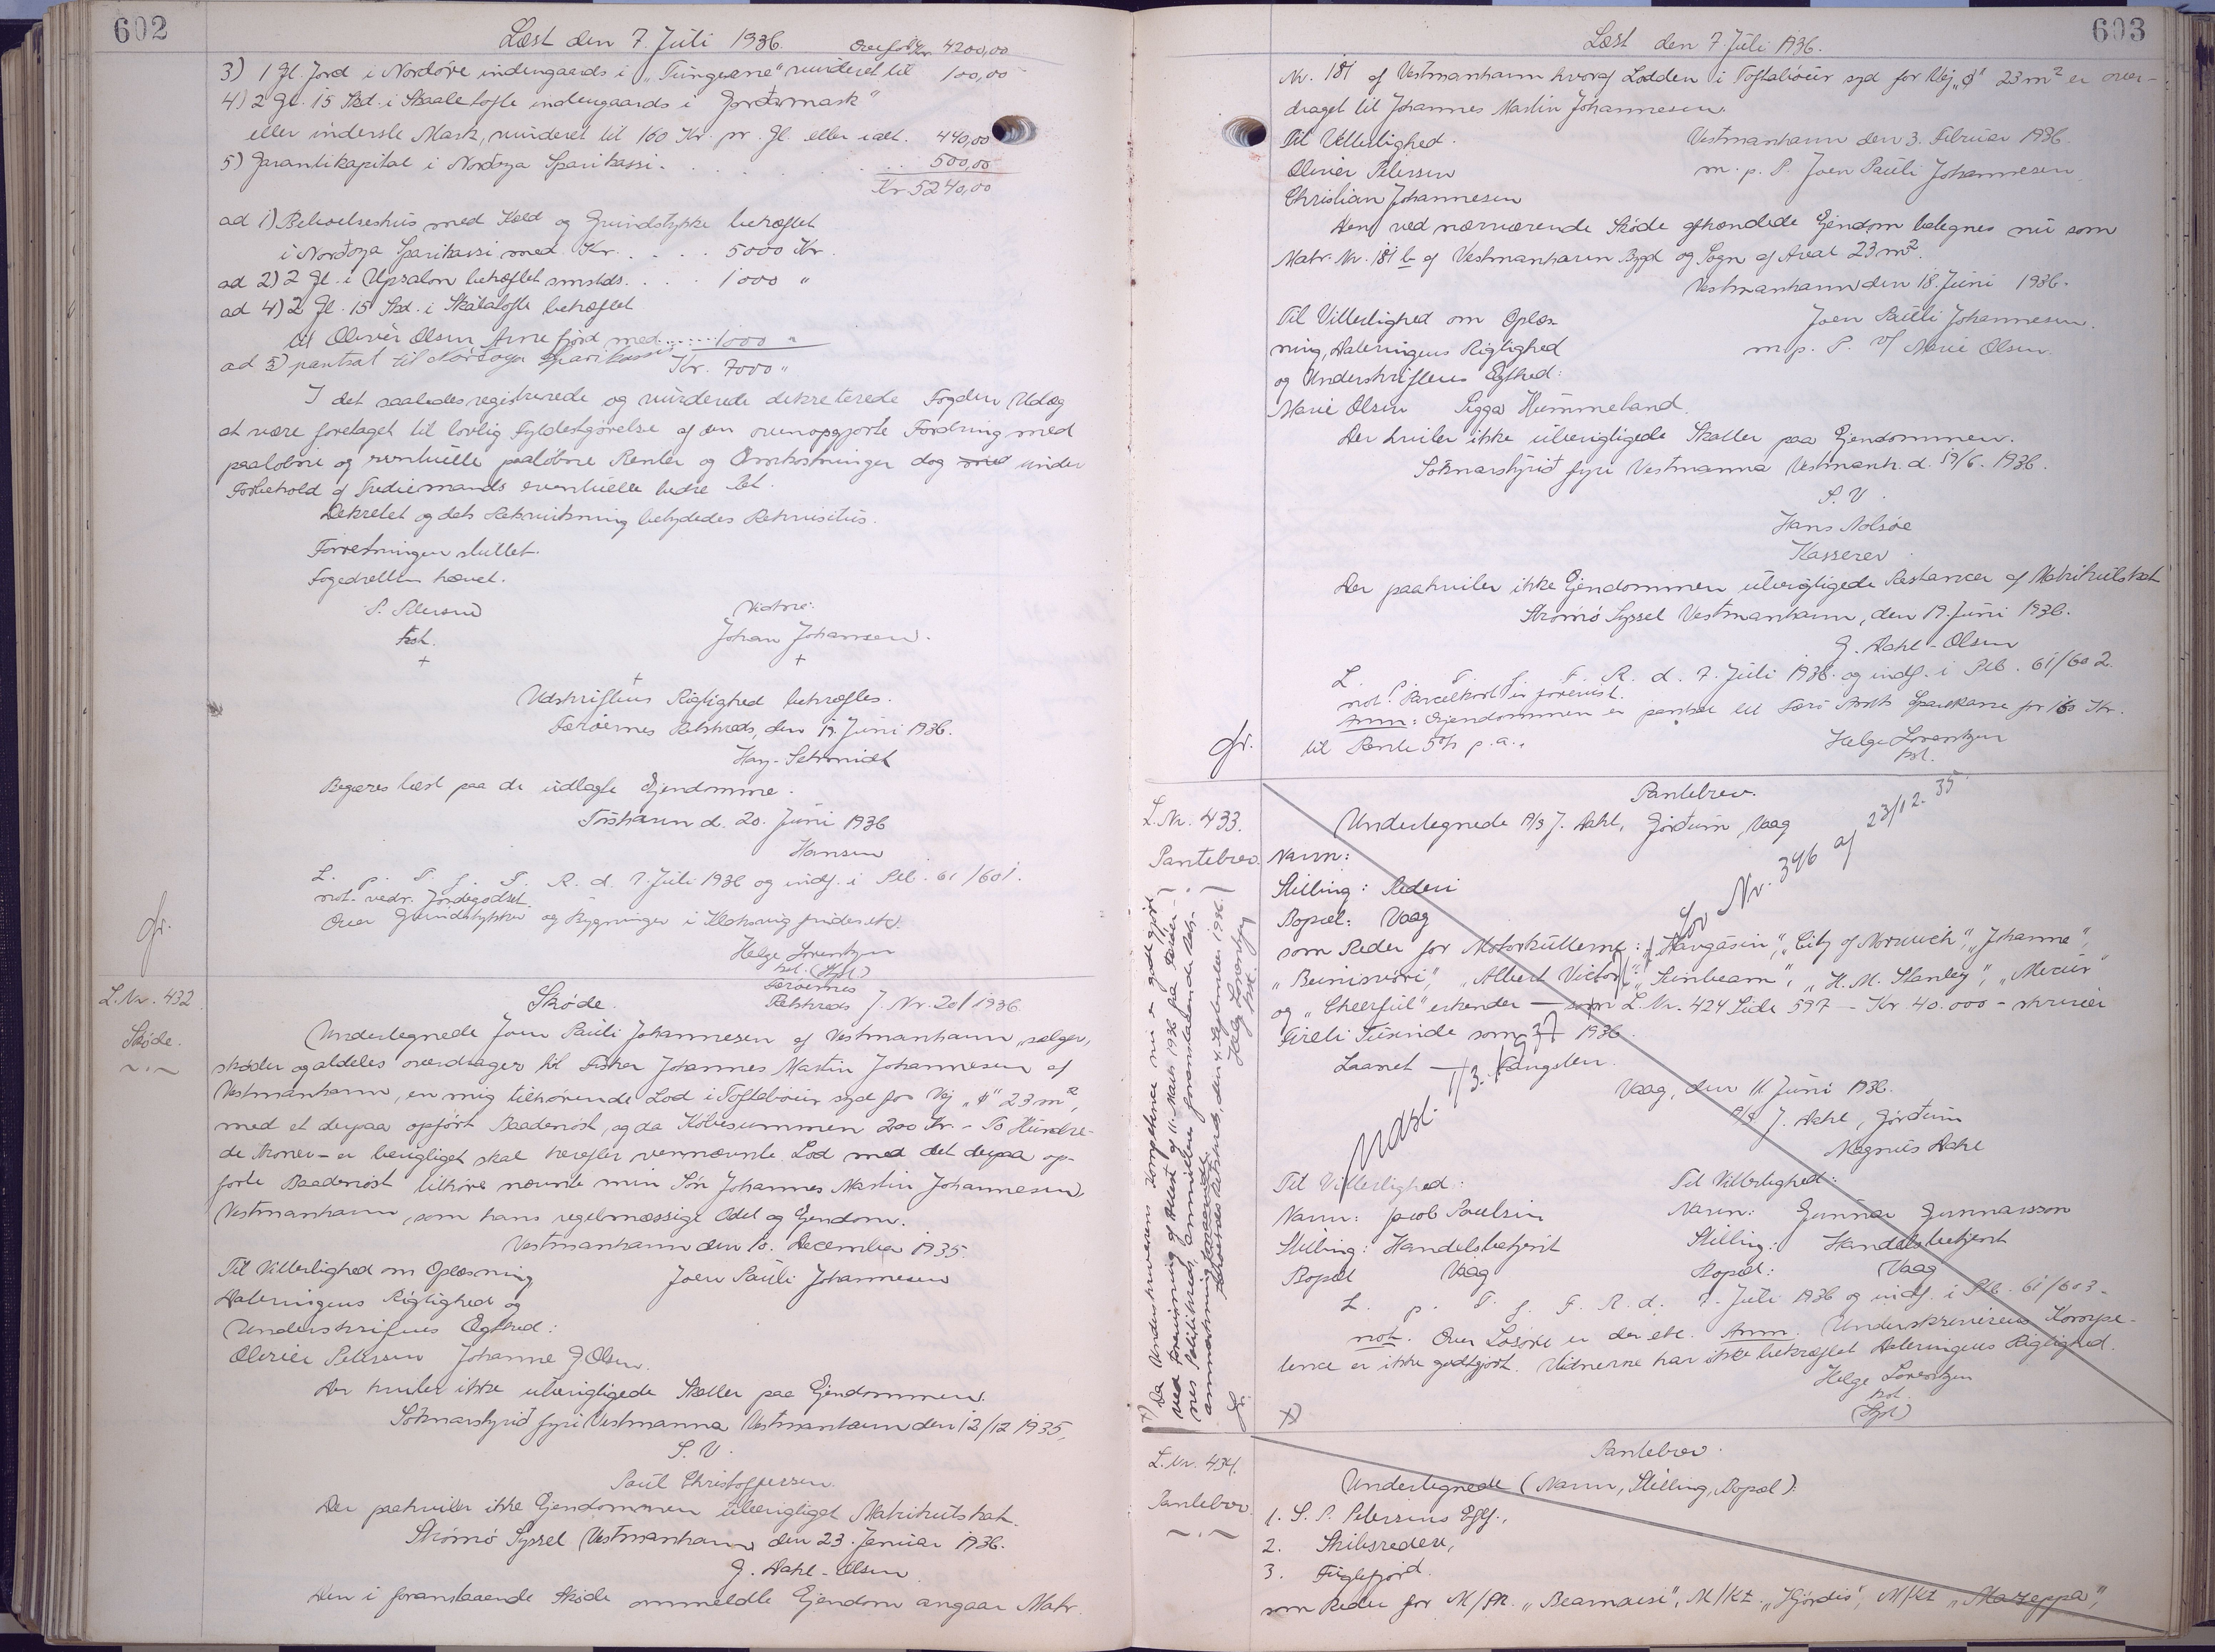 602
Læst den 7. Juli 1936.
Overført Kr. 4200,00
3) 1 Gl. Jord i Nordöre indengaards i „Tungerne" vurderet til 100,00
4) 2 Gl. 15 Skd. i Skaaletofte indengaards i
eller inderste Mark, vurderet til 160 Kr. pr. Gl. eller ialt. 440,00
5) Garantikapital i Norðoya Sparikassi. 500,00
Kr. 5240,00
ad 1) Beboelseshus med Kæld og Grundstykke behæftet
i Norðoya Sparikassi med Kr. . . . . 5000 Kr.
ad 2) 2 Gl. i Upsalon behæftet smstds. . . . 1000 "
ad 4) 2 Gl. 15 Skd. i Skálatofte behæftet
til Oliver Olsen Arnefjord med ...... 1000 "
ad 5) pantsat til Norðoya Sparikassi Kr. 7000 "
I det saaledes registrerede og vurderede dekreterede Fogden Udlæg
at være foretaget til lovlig Fyldestgørelse af den ovenopgjorte Fordring med
paaløbne og eventuelle paaløbne Renter og Omkostninger dog med under
Forbehold af Trediemands eventuelle bedre Ret.
Dekretet og dets Retsvirkning betydedes Rekvisitus.
Forretningen sluttet.
Fogedretten hævet.
P. Petersen
kst.
+
Vidne:
Johan Johansen.
+
Udskriftens Rigtighed bekræftes.
Færøernes Retskreds, den 19. Juni 1936.
Hay-Schmidt
Begæres læst paa de udlagte Ejendomme.
Tórshavn d. 20. Juni 1936
Hansen
L. p. T. f. F. R. d. 7. Juli 1936 og indf. i Ptb. 61/601.
not. vedr. Jordegodset.
Over Grundstykker og Bygninger i Klaksvig findes etc.
Helge Lorentzen
kst.
Gr.
L. Nr. 432
Skøde.
Skøde.
Færøernes
Retskreds J. Nr. 201 1936.
Undertegnede Joen Pauli Johannesen af Vestmanhavn, sælger,
skøder og aldeles overdrager til Fisker Johannes Martin Johannesen af
Vestmanhavn, en mig tilhørende Lod i Toftebøur syd for Vej „ø" 23 m²,
med et derpaa opført Baadenøst, og da Købesummen 200 Kr. - To Hundre-
de Kroner - er berigtiget skal herefter vennævnte Lod med det derpaa op-
førte Baadenøst tilhøre nævnte min Søn Johannes Martin Johannesen,
Vestmanhavn, som hans regelmæssige Odel og Ejendom.
Vestmanhavn den 10. December 1935.
Til Vitterlighed om Oplæsning
Dateringens Rigtighed og
Underskriftens Ægthed:
Joen Pauli Johannesen
Olivier Petersen Johanne J Olsen.
Der hviler ikke uberigtigede Skatter paa Ejendommen.
Sóknarstýrið fyri Vestmanna, Vestmanhavn den 12/12 1935.
P. V.
Poul Christophersen.
Der paahviler ikke Ejendommen uberigtiget Matrikulskat.
Strömö Syssel, Vestmanhavn, den 23. Januar 1936.
G. Dahl-Olsen.
Den i foranstaaende Skøde ommeldte Ejendom angaar Matr.
603
Læst den 7. Juli 1936.
Nr. 181 af Vestmanhavn hvoraf Lodden i Toftabøur syd for Vej „ø" 23 m² er over-
draget til Johannes Martin Johannesen.
Til Vitterlighed.
Vestmanhavn den 3. Februar 1936.
Olivier Petersen
m. p. P. Joen Pauli Johannesen
Christian Johannesen
Den ved nærværende Skøde afhændede Ejendom betegnes nu som
Matr. Nr. 181 b af Vestmanhavn Bygd og Sogn af Areal 23 m².
Vestmanhavn den 18. Juni 1936.
Til Vitterlighed om Oplæs-
ning, Dateringens Rigtighed
og Underskriftens Ægthed:
Joen Pauli Johannesen.
m. p. P. v/ Marie Olsen.
Marie Olsen Sigga Hummeland.
Der hviler ikke uberigtigede Skatter paa Ejendommen.
Sóknarstýrið fyri Vestmanna Vestmanh. d. 19/6. 1936.
P. V.
Hans Nolsøe
Kasserer
Der paahviler ikke Ejendommen uberigtigede Restancer af Matrikulskat
Strömö Syssel Vestmanhavn, den 19. Juni 1936.
G. Dahl-Olsen
L. p. T. f. F. R. d. 7. Juli 1936. og indf. i Ptb. 61/602.
not. Parcelkort er forevist.
Anm: Ejendommen er pantsat til Færö Amts Sparekasse for 160 Kr.
til Rente 5% p. a.
Helge Lorentzen
kst.
Gr.
L. Nr. 433.
Pantebrev.
Pantebrev.
Undertegnede A/S J. Dahl, Jørðum, Vaag
Navn:
Stilling: Rederi
Bopæl: Vaag
som Reder for Motorkutterne: „Havgásin", „City of Norwich", „Johanna",
„Beinisvörð", „Albert Victor", „Sunbeam", „H. M. Stanley", „Mercur"
og „Cheerful" erkender — som L. Nr. 424 Side 597 — Kr. 40.000 - skriver
Fireti Tusinde som 1936
Laanet — 1/3. Fangsten.
lov Nr. 346 af 23/12. 35.
Udsl.
Vaag, den 11. Juni 1936.
A/S J. Dahl, Jørðum
Magnus Dahl
Til Vitterlighed:
Navn: Jacob Poulsen
Stilling: Handelsbetjent
Bopæl Vaag
Til Vitterlighed:
Navn: Gunnar Gunnarsson
Stilling: Handelsbetjent
Bopæl: Vaag
L. p. T. f. F. R. d. 7. Juli 1936 og indf. i Ptb. 61/603.
not. Over Løsøre er der etc. Anm. Underskriverens Kompe-
tence er ikke godtgjort. Vidnerne har ikke bekræftet Dateringens Rigtighed.
Helge Lorentzen
kst.
x)
x) Da Underskriverens Kompetence nu er godtgjort
ved Forevisning af Attest af 11. Marts 1936 fra Færöer-
nes Politikreds, annulleres foranstaaende Ret-
anmærkning foranstaaende.
Færøernes Retskreds, den 4. September 1936.
Helge Lorentzen
kst.
Gr.
L. Nr. 434.
Pantebrev.
Pantebrev.
Undertegnede (Navn, Stilling, Bopæl):
1. S. P. Petersens Eftf.,
2. Skibsredere,
3. Fuglefjord.
som Reder for M/Sk. „Bearnaisi", M/Kt. „Hjördis", M/Kt. „Mazeppa",